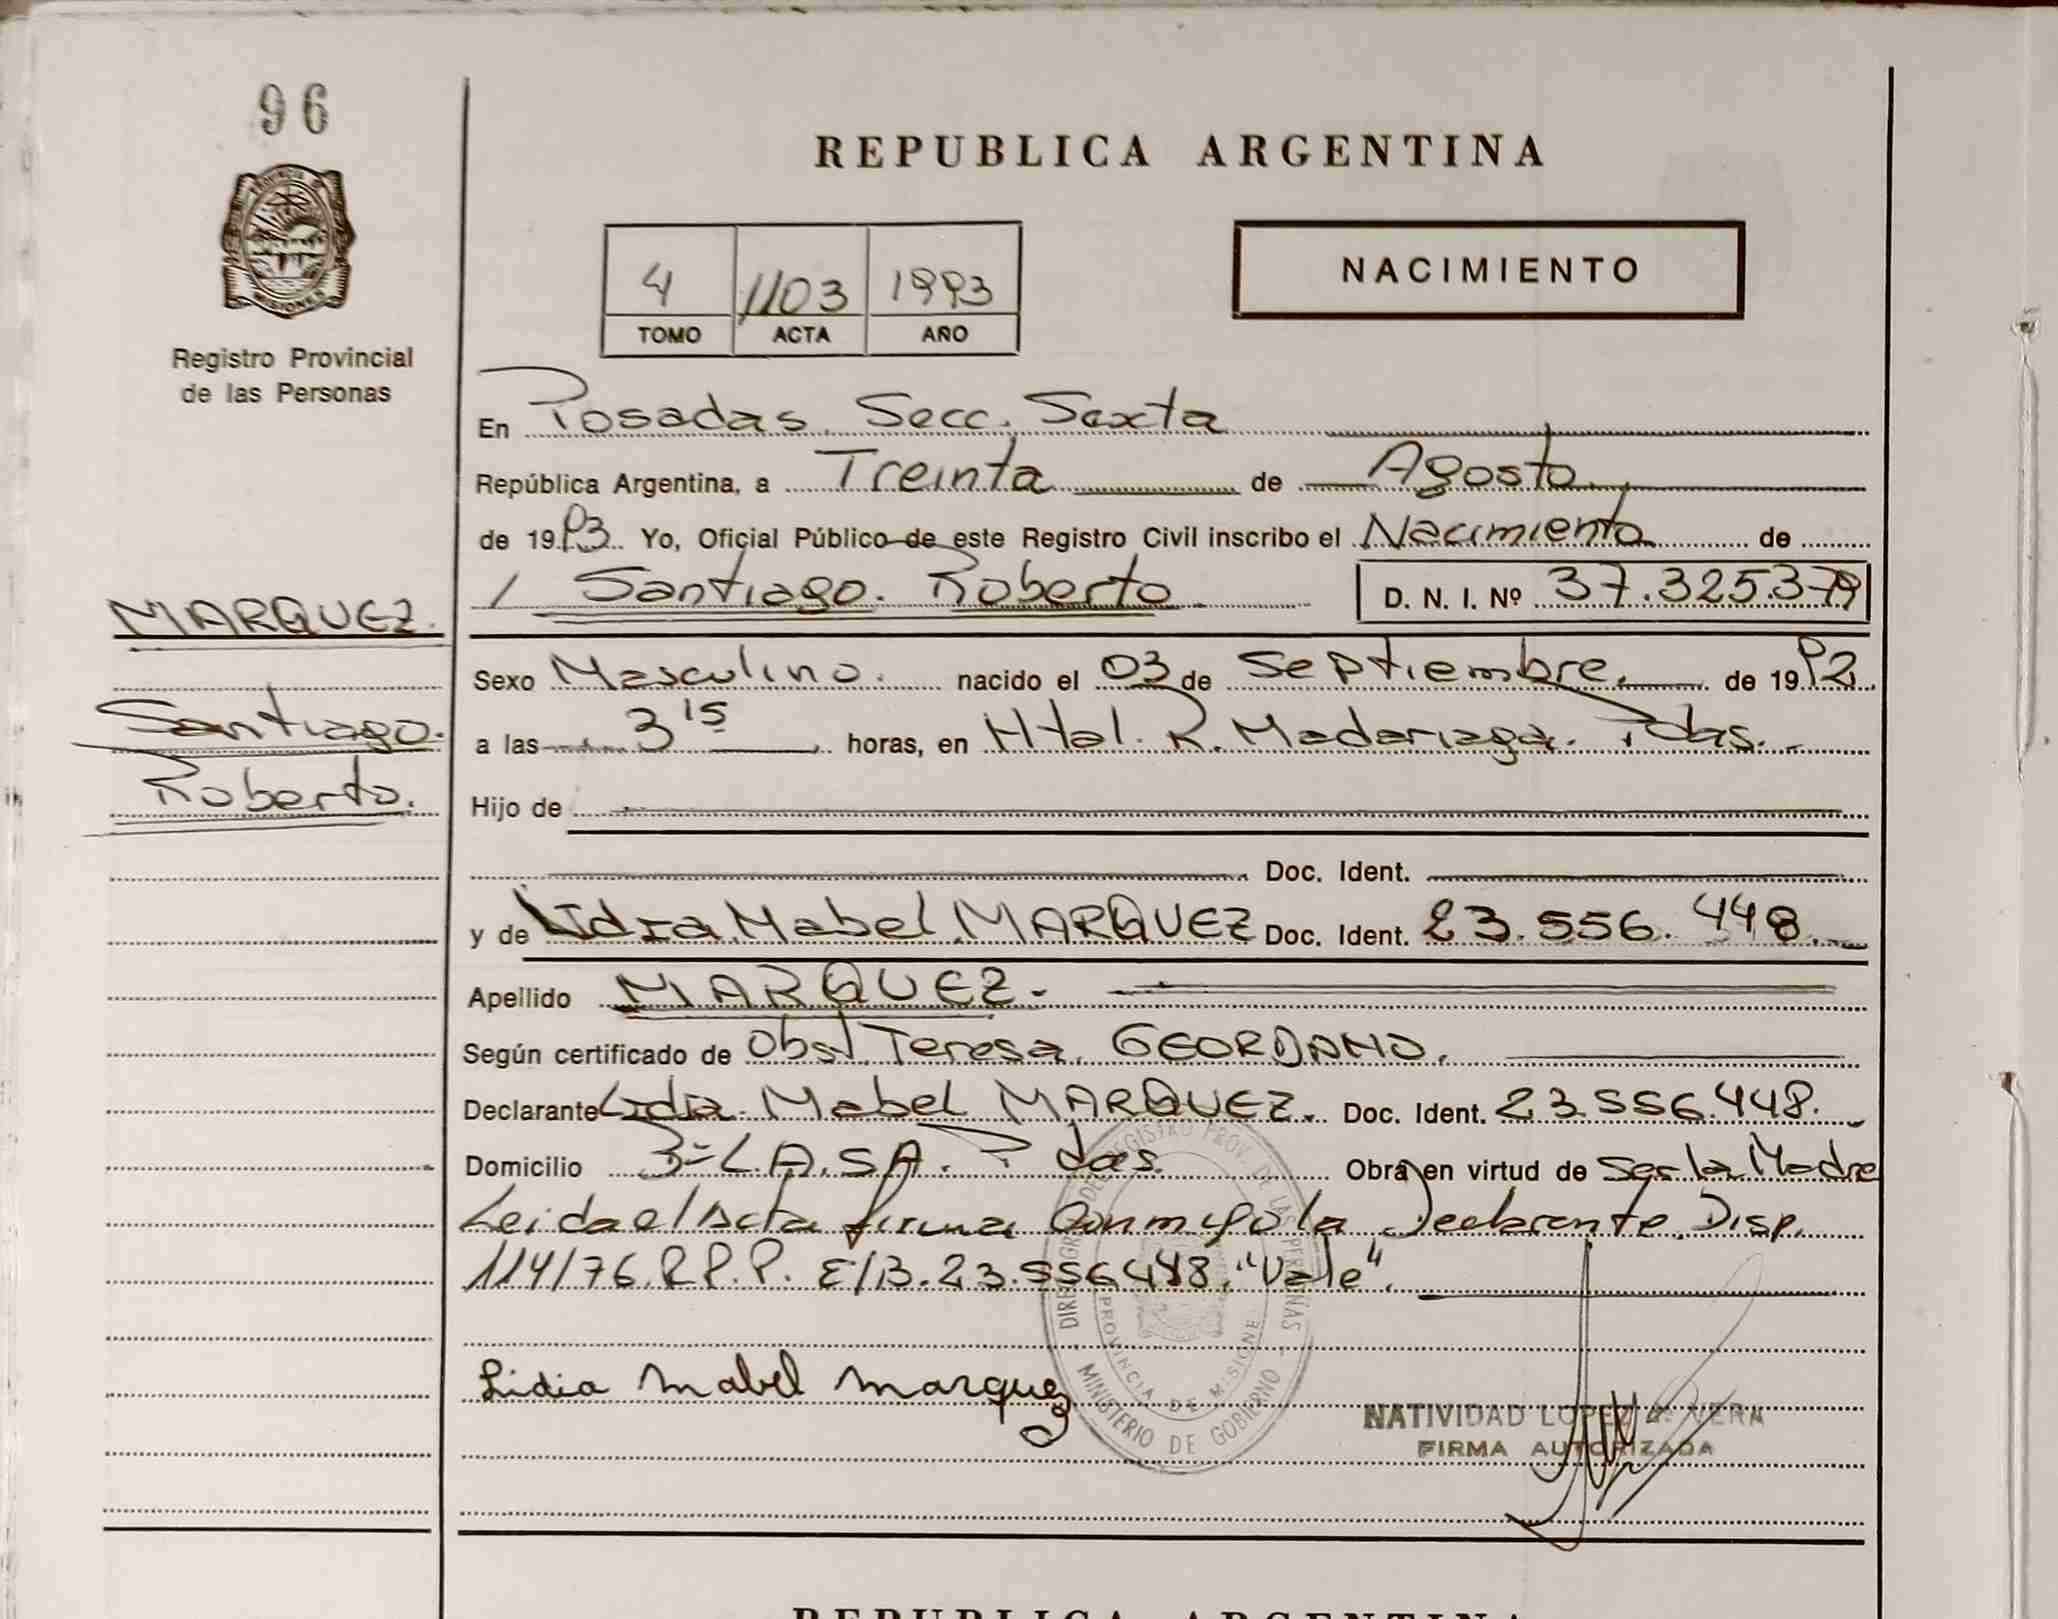 96
PROVINCIA DE
MISIONES
Registro Provincial
de las Personas
MARQUEZ.
Santiago.
Roberto.
REPUBLICA ARGENTINA
4 1103 1993
TOMO ACTA AÑO
NACIMIENTO
En Posadas. Secc. Sexta
República Argentina, a Treinta de Agosto.
de 1993. Yo, Oficial Público de este Registro Civil inscribo el Nacimiento de
/ Santiago. Roberto D. N. I. Nº 37.325.379
Sexo Masculino. nacido el 03 de Septiembre. de 1992.
a las 3 15 horas, en Htal. R. Madariaga. Pdas.
Hijo de
Doc. Ident.
y de Lidia Mabel MARQUEZ Doc. Ident. 23.556.448.
Apellido MARQUEZ.
Según certificado de Obst. Teresa. GEORDANO.
Declarante Lidia Mabel MARQUEZ. Doc. Ident. 23.556.448.
Domicilio L.A.SA. Pdas. Obra en virtud de Ser la Madre
Leida el Acta firma Conmigo la Declarante. Disp.
114/76.R.P.P. E/B.23.556.448."Vale".
Lidia Mabel Marquez
DIRE GRAL DEL REGISTRO PROV. DE LAS PERSONAS
PROVINCIA DE MISIONES
MINISTERIO DE GOBIERNO
NATIVIDAD LOPEZ d. VERA
FIRMA AUTORIZADA
REPUBLICA ARGENTINA